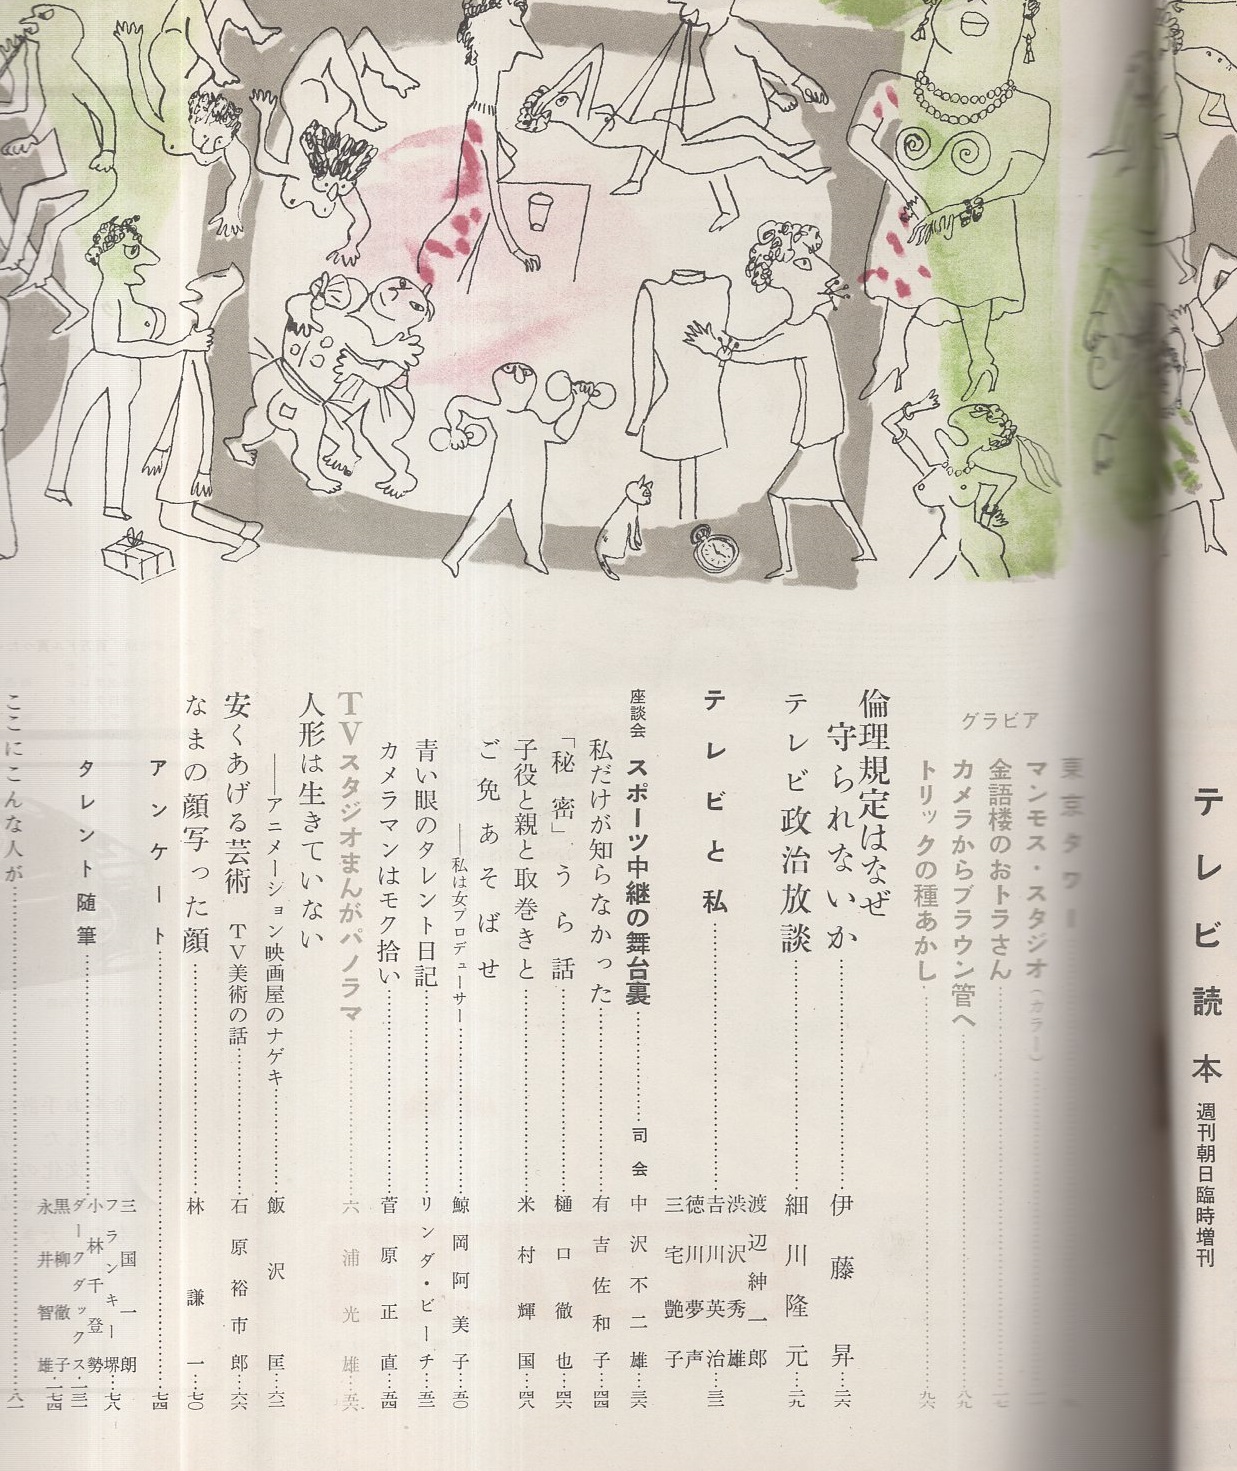 テレビ読本 週刊朝日臨時増刊
グラビア
東京タワー
マンモス・スタジオ(カラー)
金語楼のおトラさん
カメラからブラウン管へ……八九
トリックの種あかし……九六
倫理規定はなぜ
守られないか……伊藤昇…二六
テレビ政治放談……細川隆元…二九
テレビと私……
渡辺紳一郎
渋沢秀雄
吉川英治…三二
徳川夢声
三宅艶子
座談会 スポーツ中継の舞台裏……司会 中沢不二雄…三六
私だけが知らなかった……有吉佐和子…四四
「秘密」うら話……樋口徹也…四六
子役と親と取巻きと……米村輝国…四八
ご免あそばせ
――私は女プロデューサー……鯨岡阿美子…五〇
青い眼のタレント日記……リンダ・ビーチ…五二
カメラマンはモク拾い……菅原正直…五四
TVスタジオまんがパノラマ……六浦光雄…五六
人形は生きていない
――アニメーション映画屋のナゲキ……飯沢匡…六二
安くあげる芸術 TV美術の話……石原裕市郎…六六
なまの顔写った顔……林謙一…七〇
アンケート……七四
タレント随筆……
三国一朗
フランキー堺…七八
小林千登勢
ダークダックス…一三一
黒柳徹子…一七四
永井智雄
ここにこんな人が……八一